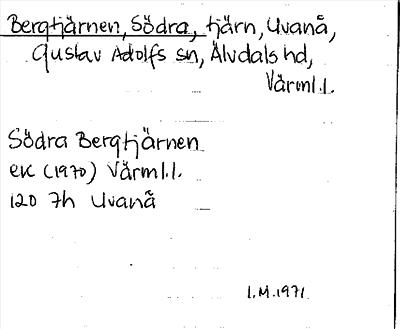 Bergtjärnen, Södra, tjärn, Uvanå,
Gustav Adolfs sn, Älvdals hd,
Värml.l.
Södra Bergtjärnen
ek (1970) Värml.l.
120 7h Uvanå
I.M.1971